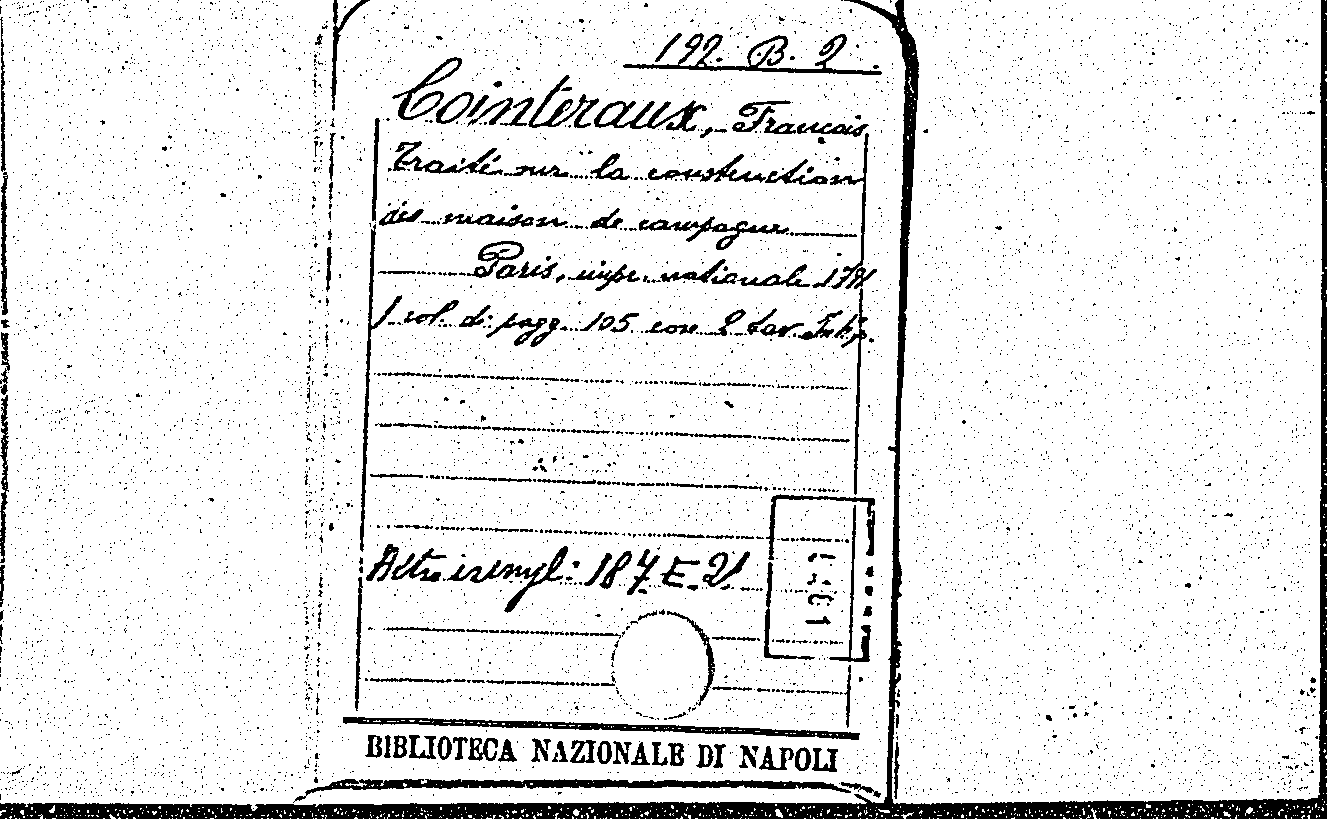 192. B. 2.
Cointeraux, François
Traité sur la construction
des maison de campagne
Paris, impr. nationale 1791
1 vol. di pagg. 105 con 2 tav. In 8.p.
Altro esempl: 187 E 21
BIBLIOTECA NAZIONALE DI NAPOLI